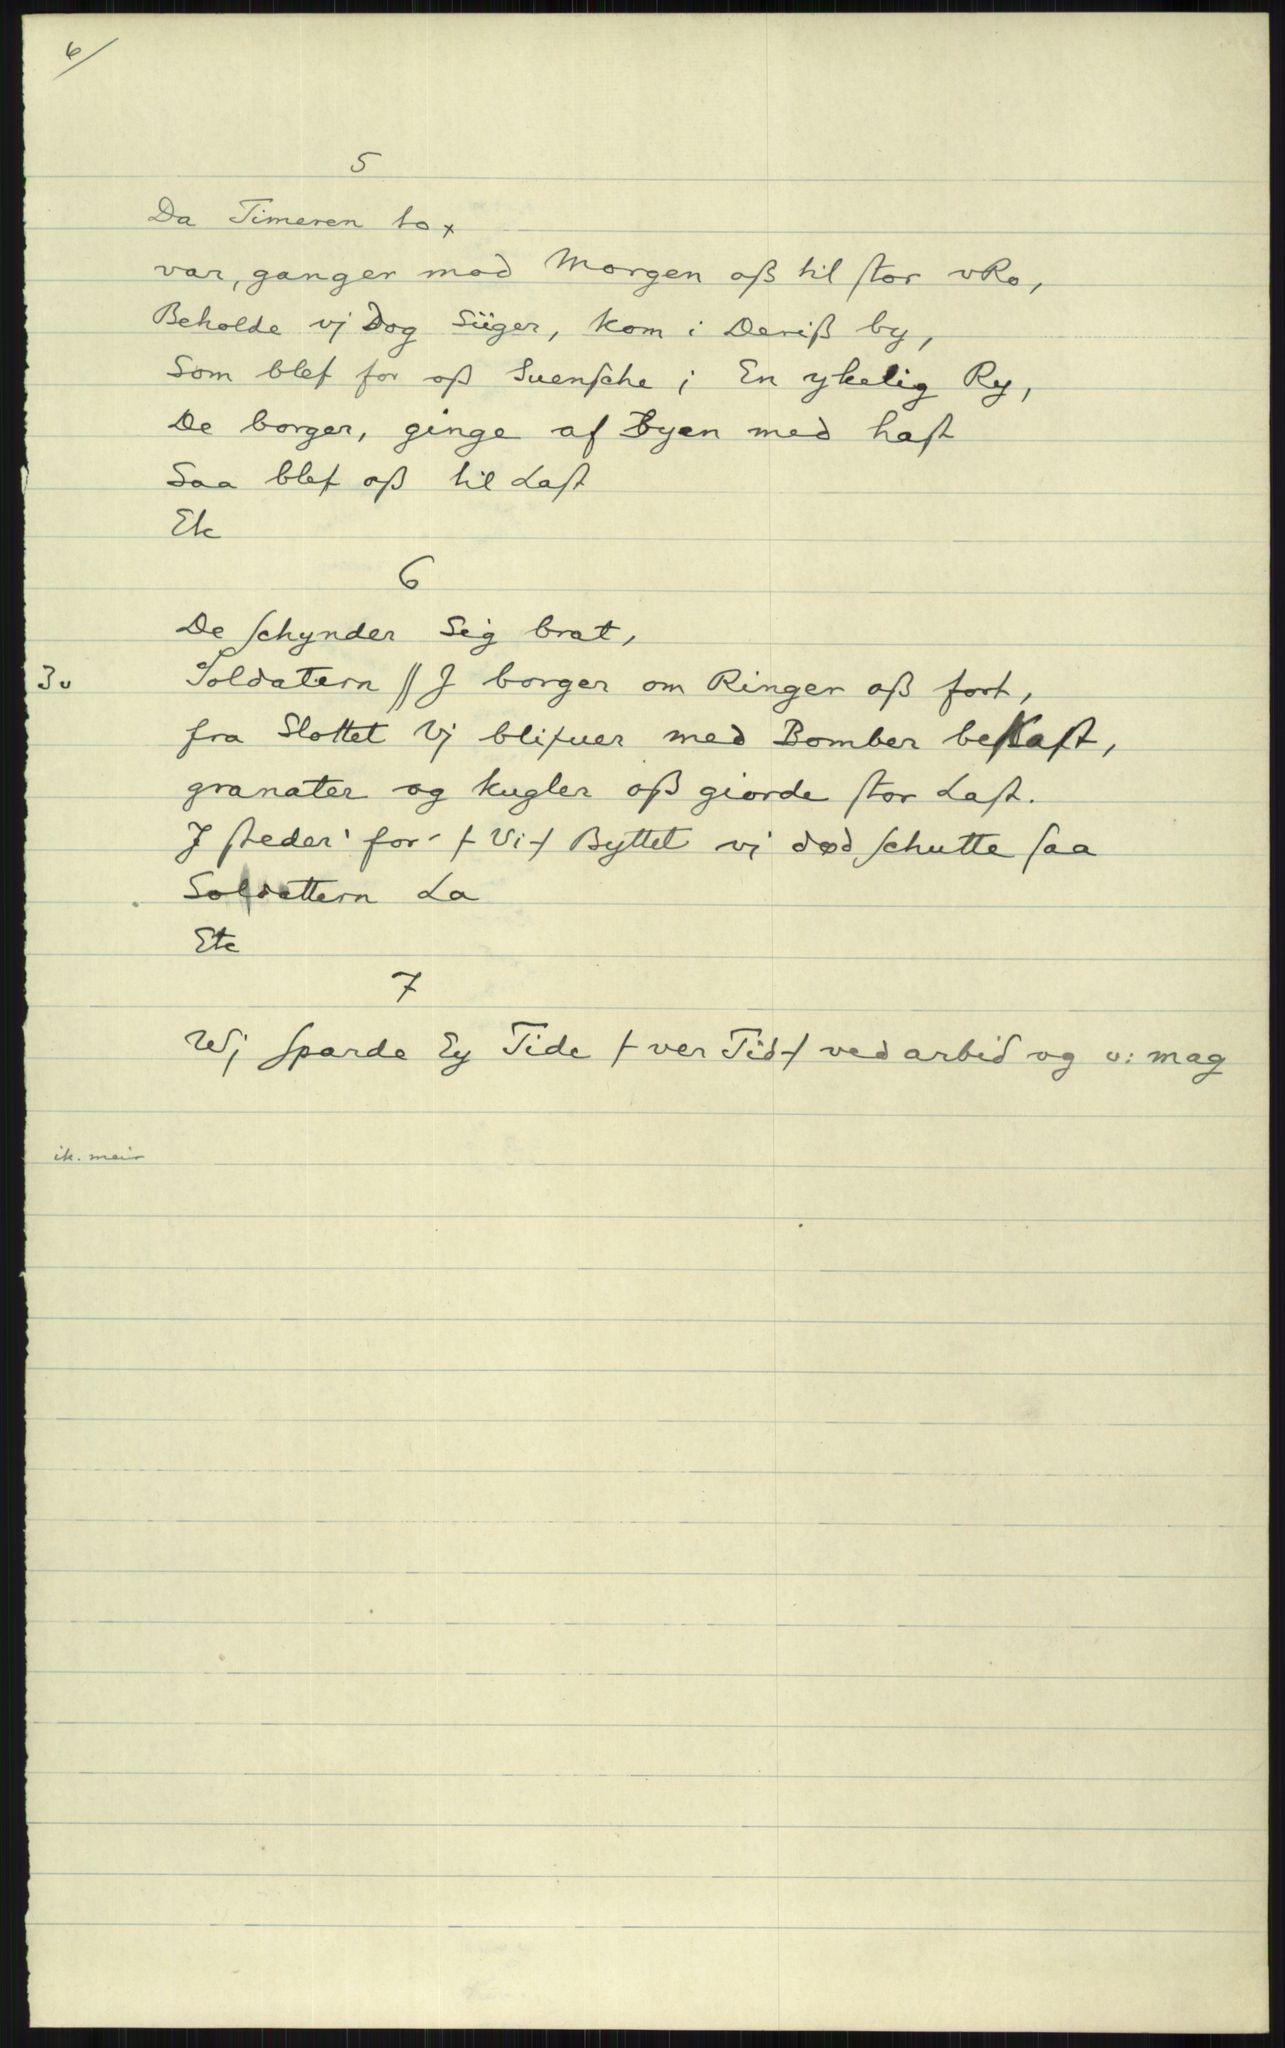 6/
5
Da Timeren to +
var, ganger mod Morgen oß til ſtor vRo,
Beholde vj Dog Siiger, kom i Deriß by,
Som blef for oß Suenſche i En ykelig Ry,
De borger, ginge af Byen med haſt
Saa blef oß til Laſt
Etc
6
De ſchynder Sig brat,
3v Soldatern // J borger om Ringer oß fort,
fra Slottet Vj blifuer med Bomber beKaſt,
granater og kugler oß giorde ſtor Laſt.
J ſteder' for - Vi - Byttet vj død ſchutte ſaa
Soldattern La
Etc
7
Wj ſparde Ey Tide - ver Tid - ved arbid og v: mag
ik. meir